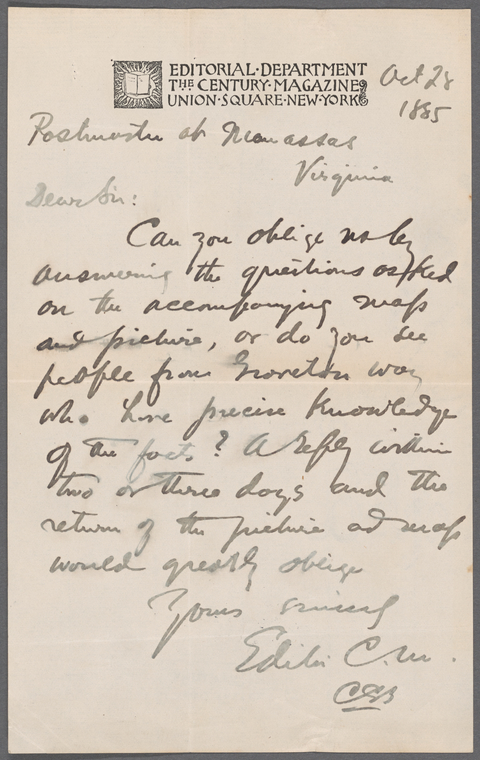 EDITORIAL·DEPARTMENT
THE CENTURY·MAGAZINE
UNION·SQUARE·NEW·YORK
Oct 28
1885
Postmaster at Manassas
Virginia
Dear Sir:
Can you oblige us by
answering the questions asked
on the accompanying map
and picture, or do you see
people from Groveton way
who have precise knowledge
of the facts? A reply within
two or three days and the
return of the picture ad map
would greatly oblige
Yours sincerely
Editor C.M.
CCB